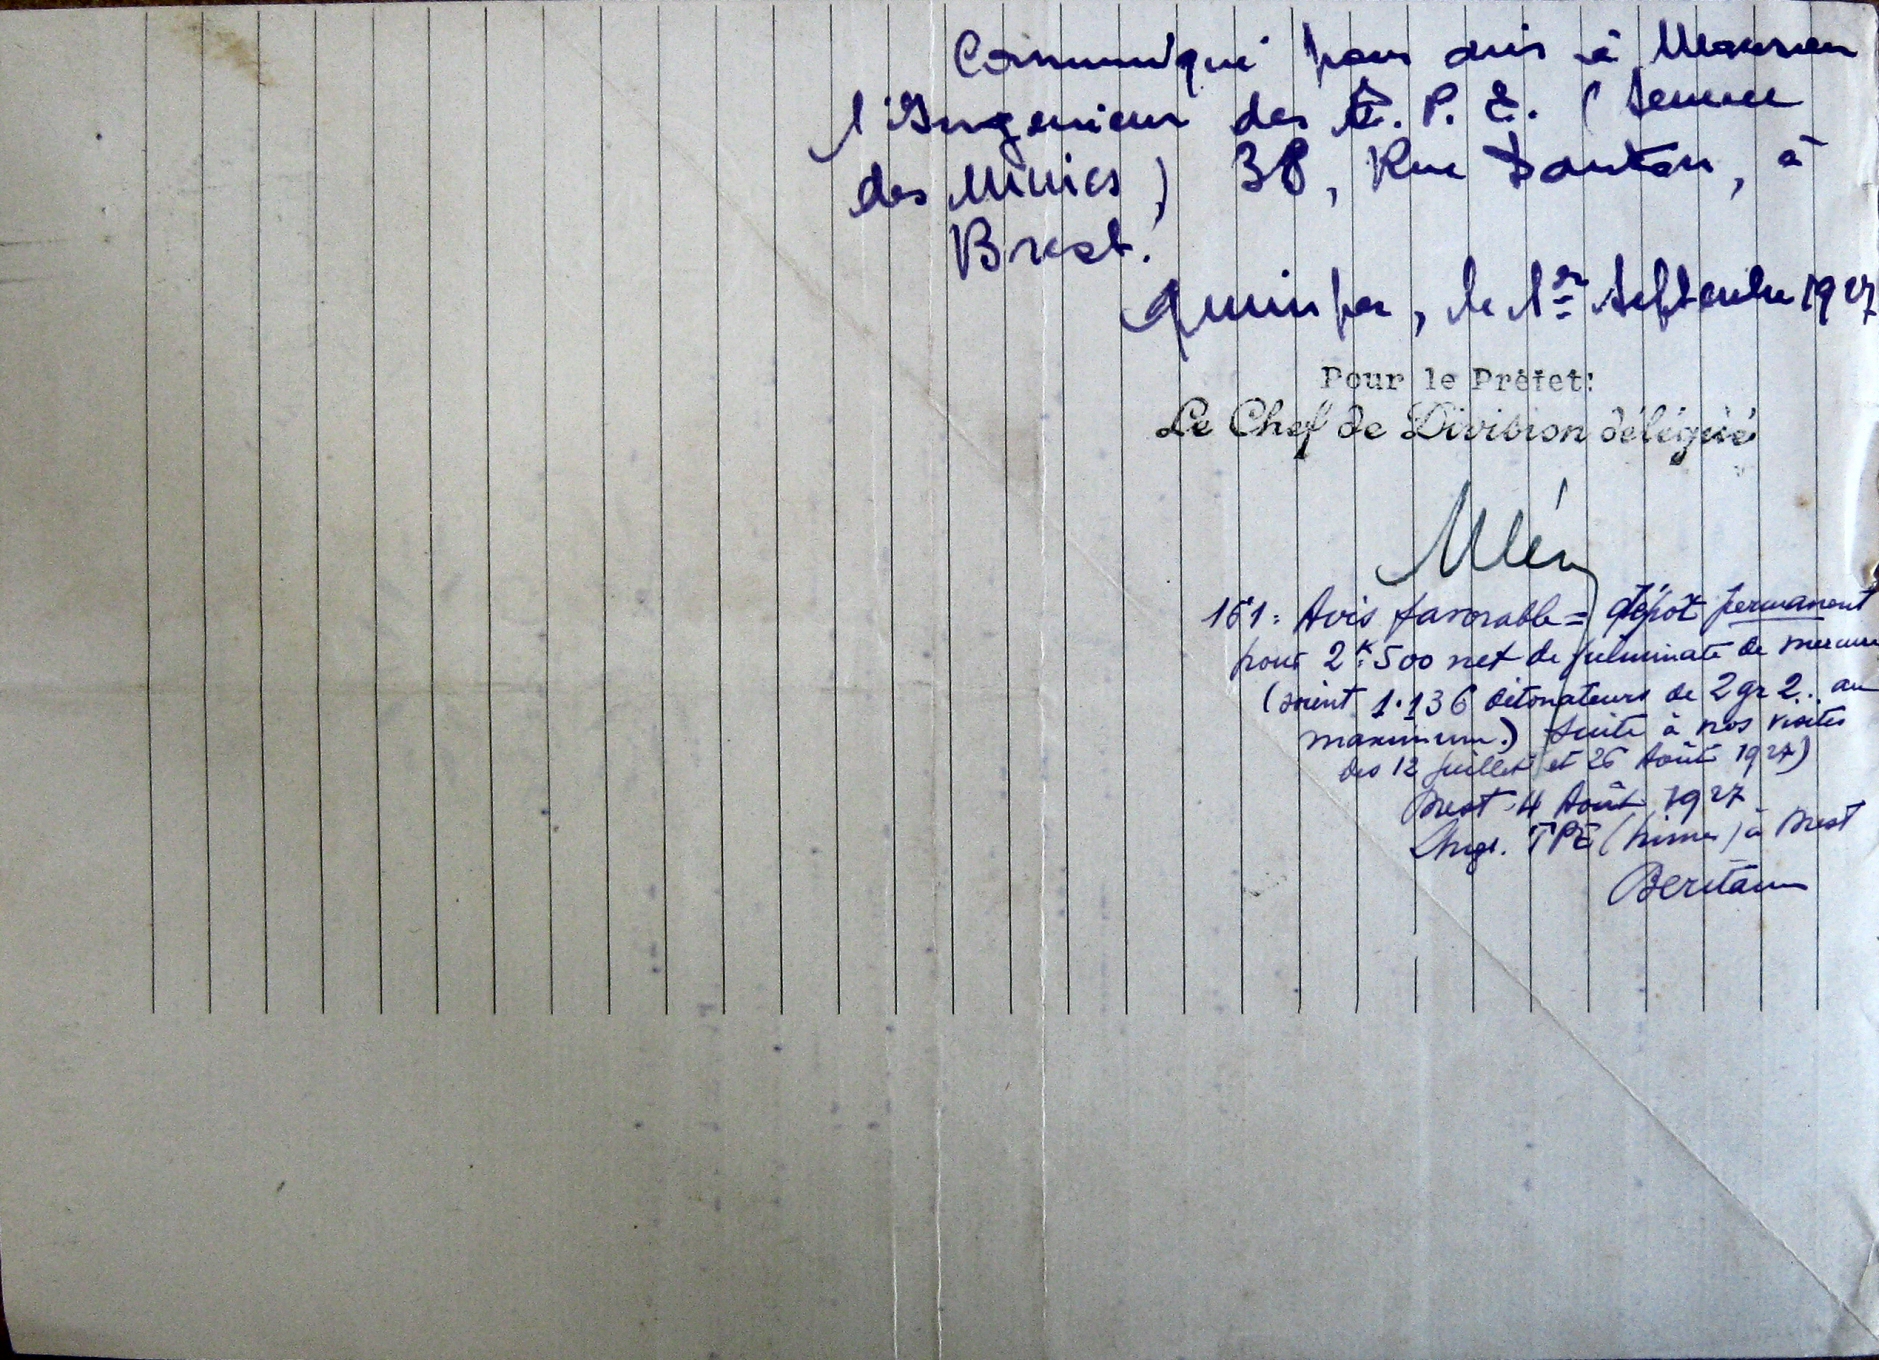 Communiqué pour avis à Monsieur
l'Ingenieur des T. P. E. (Service
des Mines) 38, Rue Danton, à
Brest.
Quimper, le 1er Septembre 1927
Pour le Préfet:
Le Chef de Division délégué
151: Avis favorable = dépôt permanent
pour 2k:500 net de fulminate de mercure
(soient 1.136 détonateurs de 2gr2.. au
maximum.) Suite à nos visites
des 12 juillet et 26 Août 1927)
Brest 4 Août 1927
Ingr. TPE (Mines) à Brest